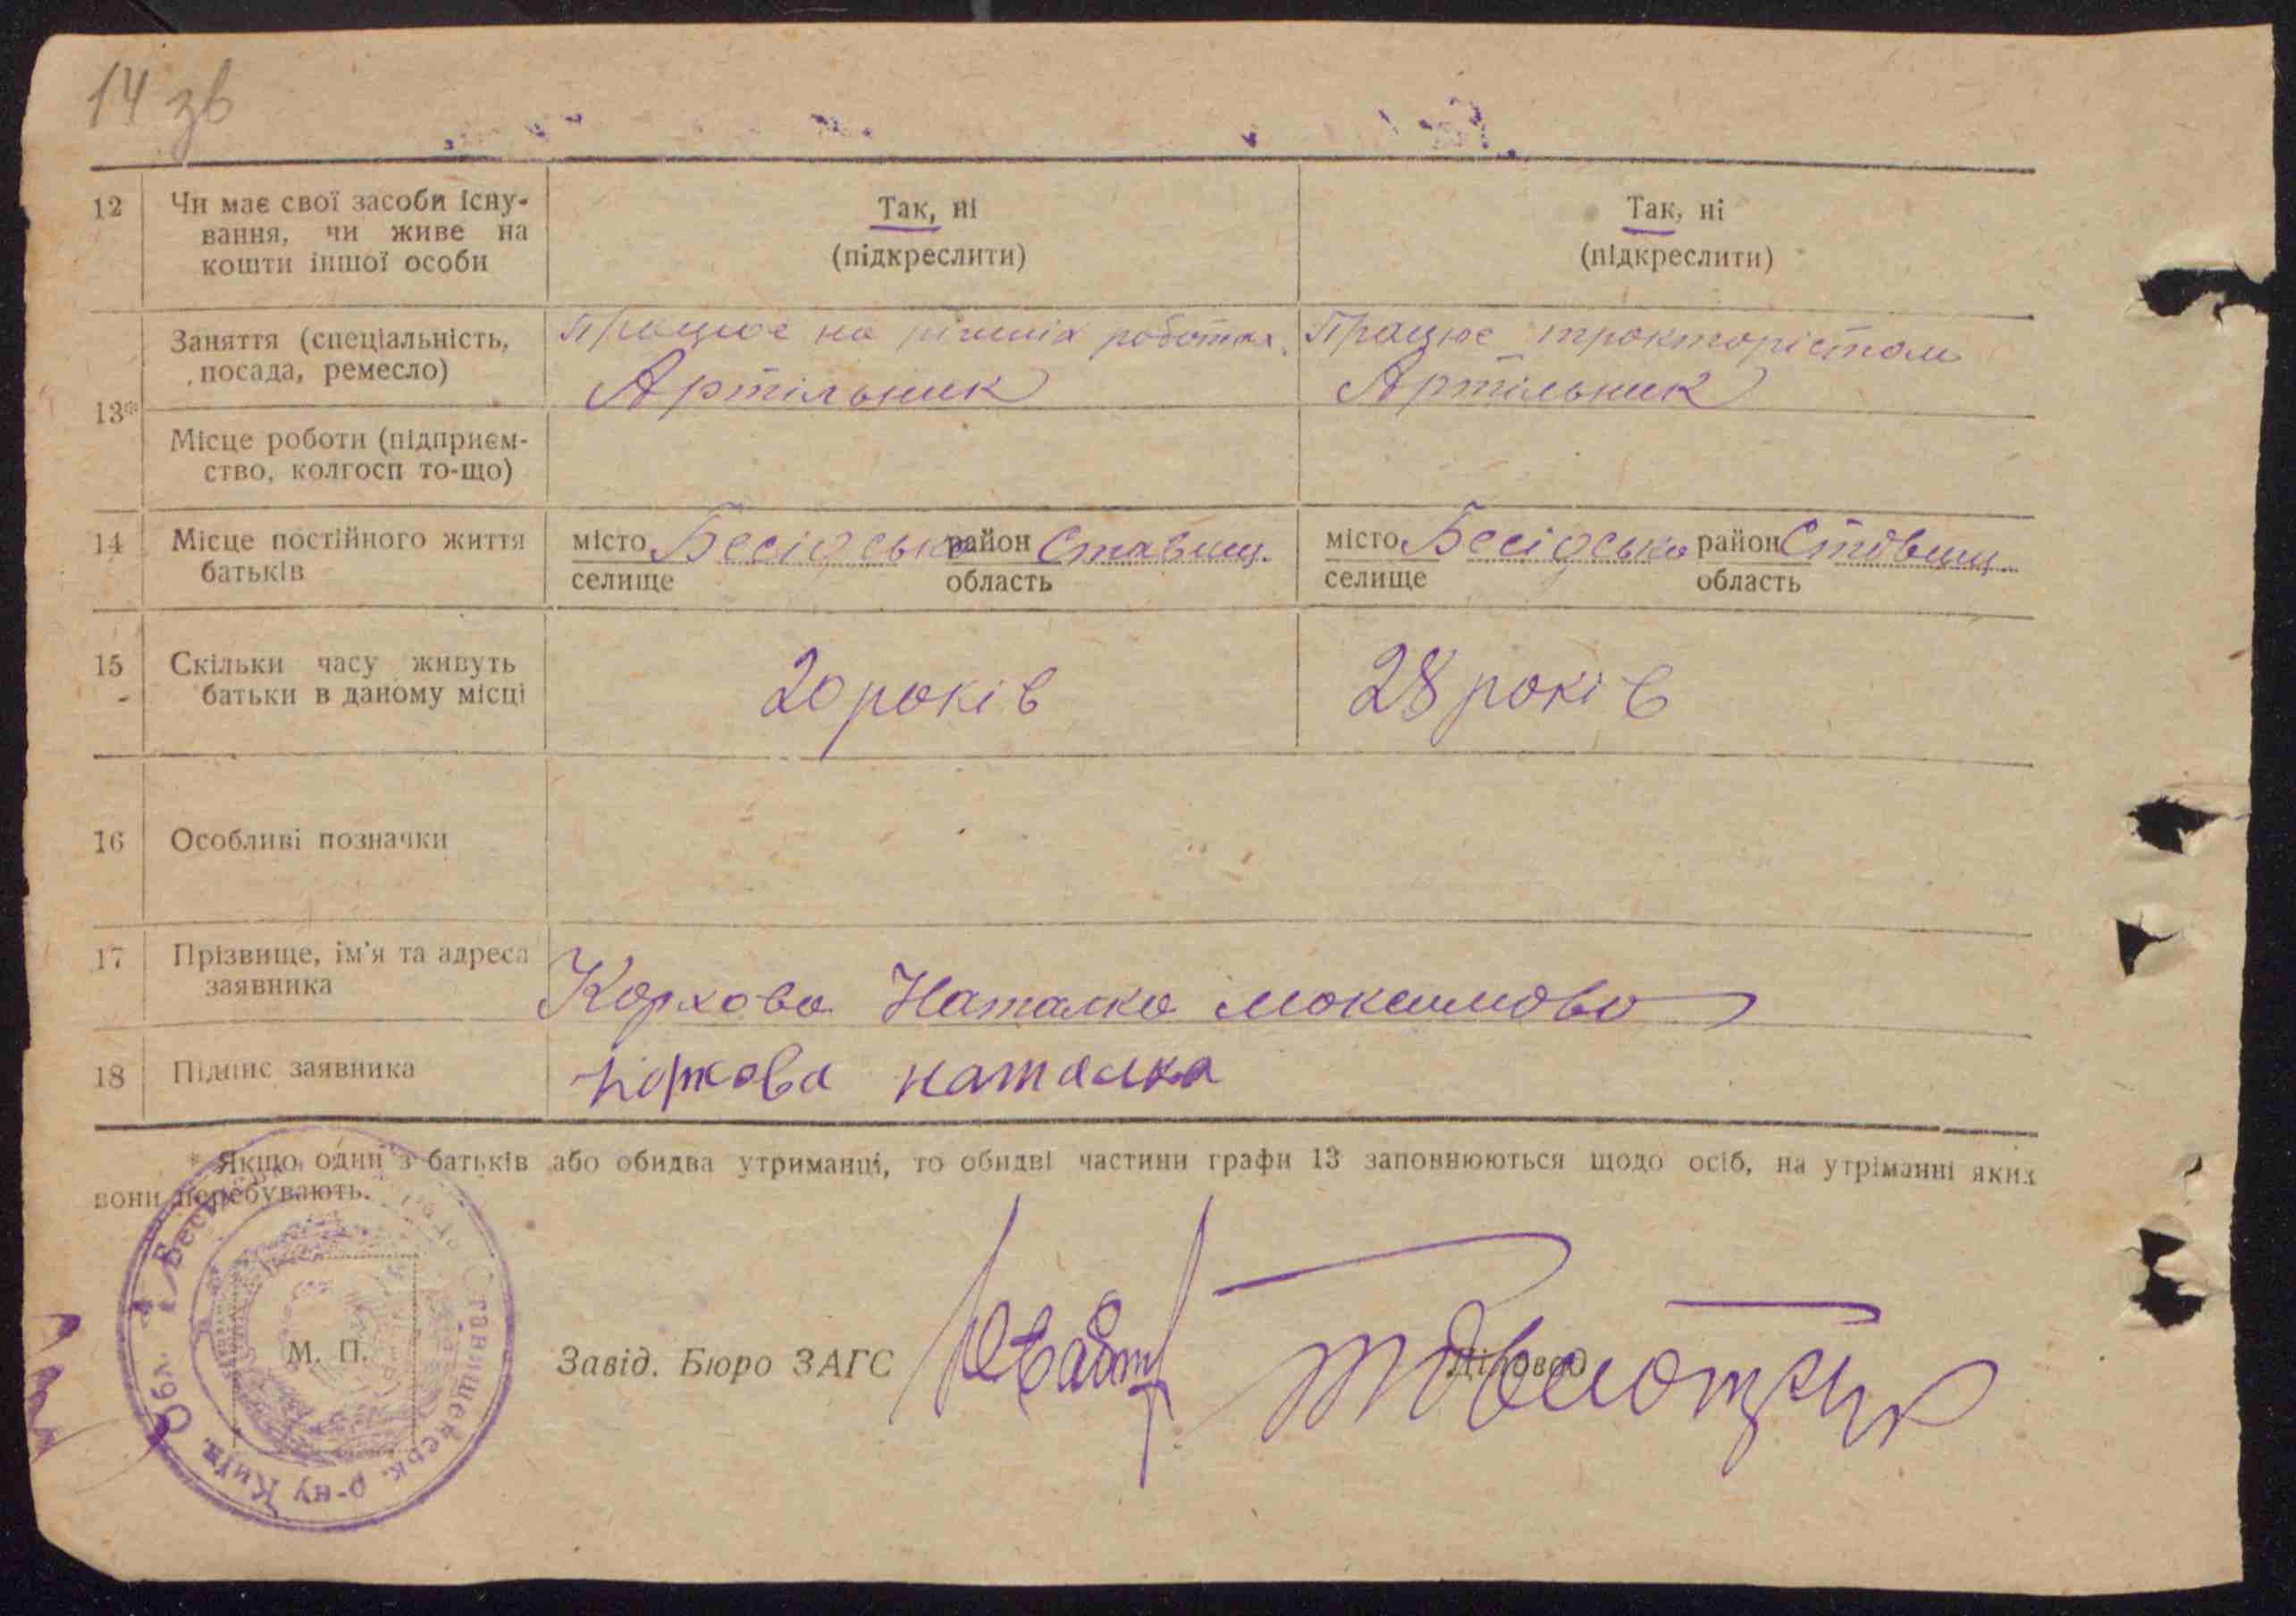 14 зв
12 Чи має свої засоби існу-
вання, чи живе на
кошти іншої особи
Так, ні
(підкреслити)
Так, ні
(підкреслити)
13*
Заняття (спеціальність,
посада, ремесло)
Працює на різних роботах.
Артільник
Працює трокторістом
Артільник
Місце роботи (підприєм-
ство, колгосп то-що)
14 Місце постійного життя
батьків
місто Бесідська район Ставищ.
селище область
місто Бесідська район Ставищ
селище область
15 Скільки часу живуть
батьки в даному місці
20 років
28 років
16 Особливі позначки
17 Прізвище, ім'я та адреса
заявника
Коржова Наталка Максимова
18 Підпис заявника
Коржова наталка
* Якщо один з батьків або обидва утриманці, то обидві частини графи 13 заповнюються щодо осіб, на утріманні яких
вони перебувають.
Ставищенськ. р-ну Київ. Обл.
М. П.
Завід. Бюро ЗАГС
Діловод